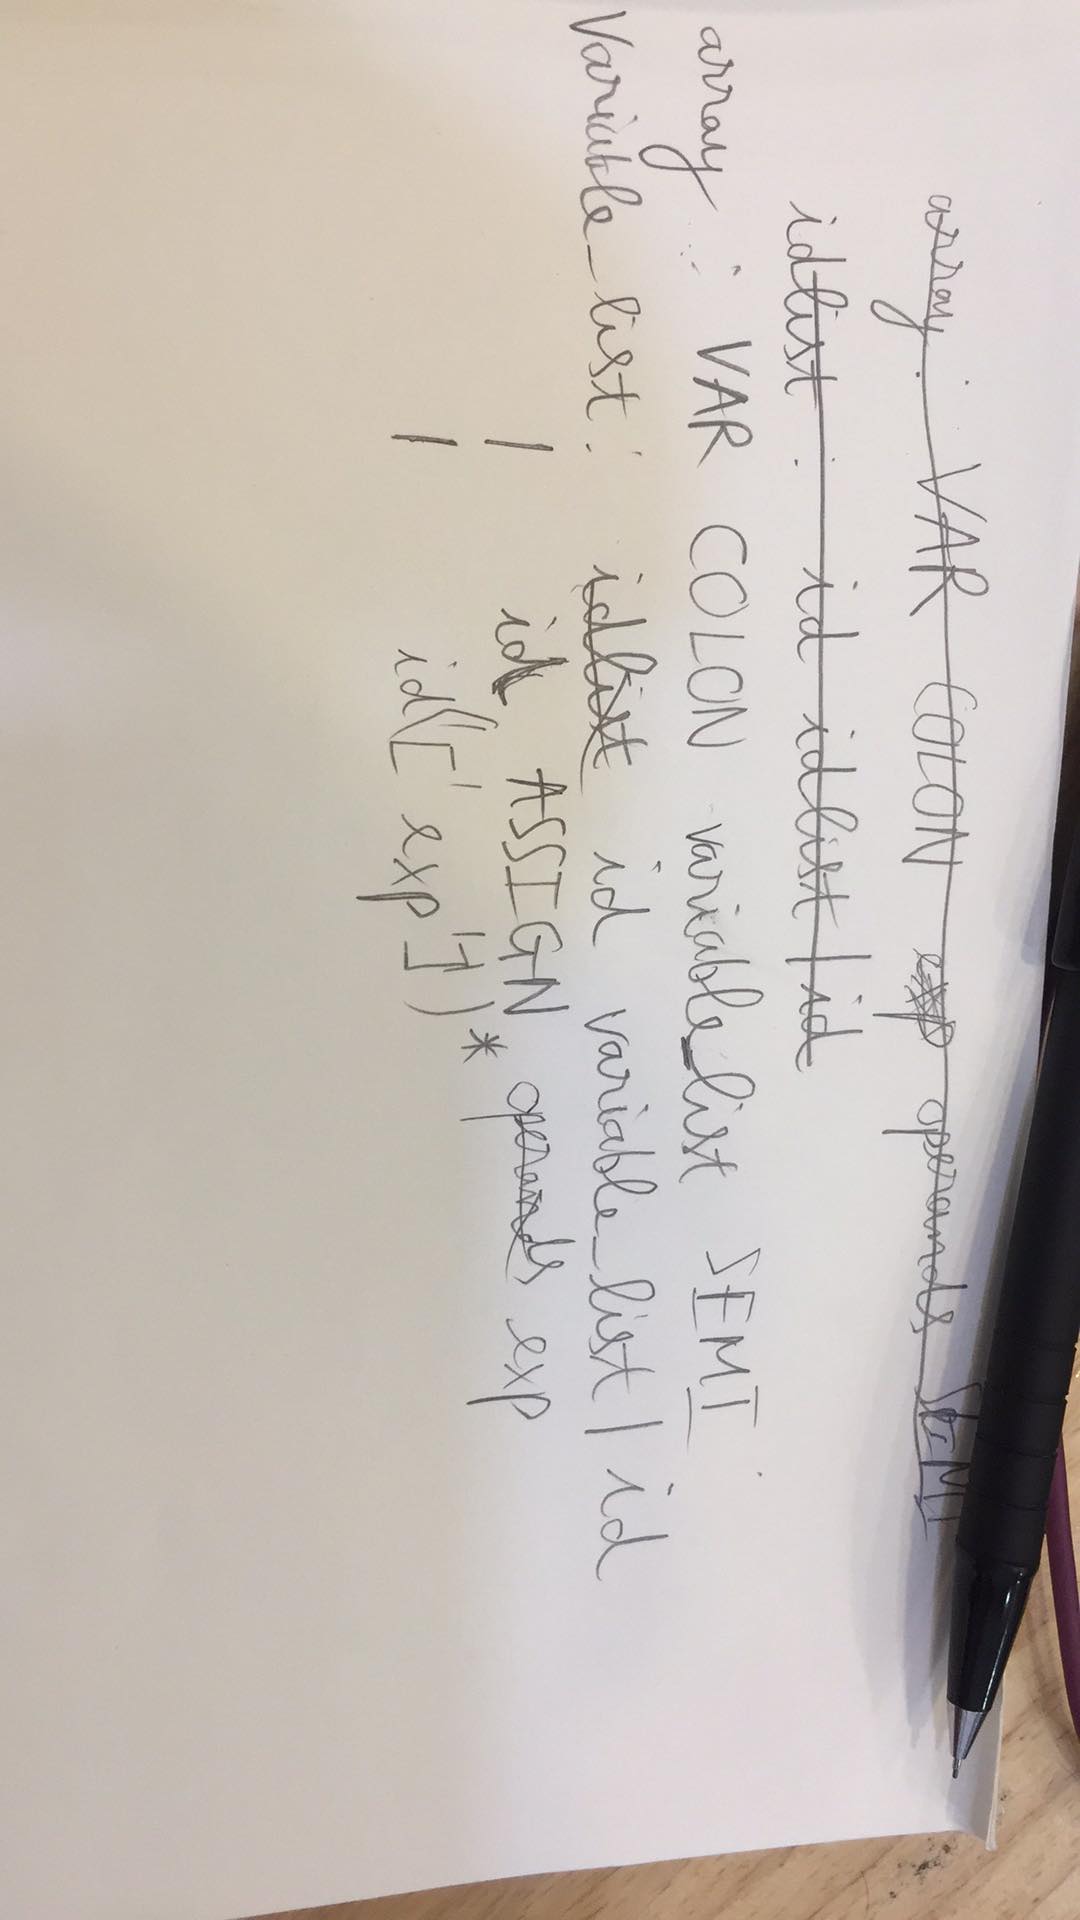 array : VAR COLON exp operands SEMI
idlist : id idlist | id
array : VAR COLON variable_list SEMI
Variable_list : idlist id variable_list | id
| id ASSIGN operands exp
| id('[' exp ']')*